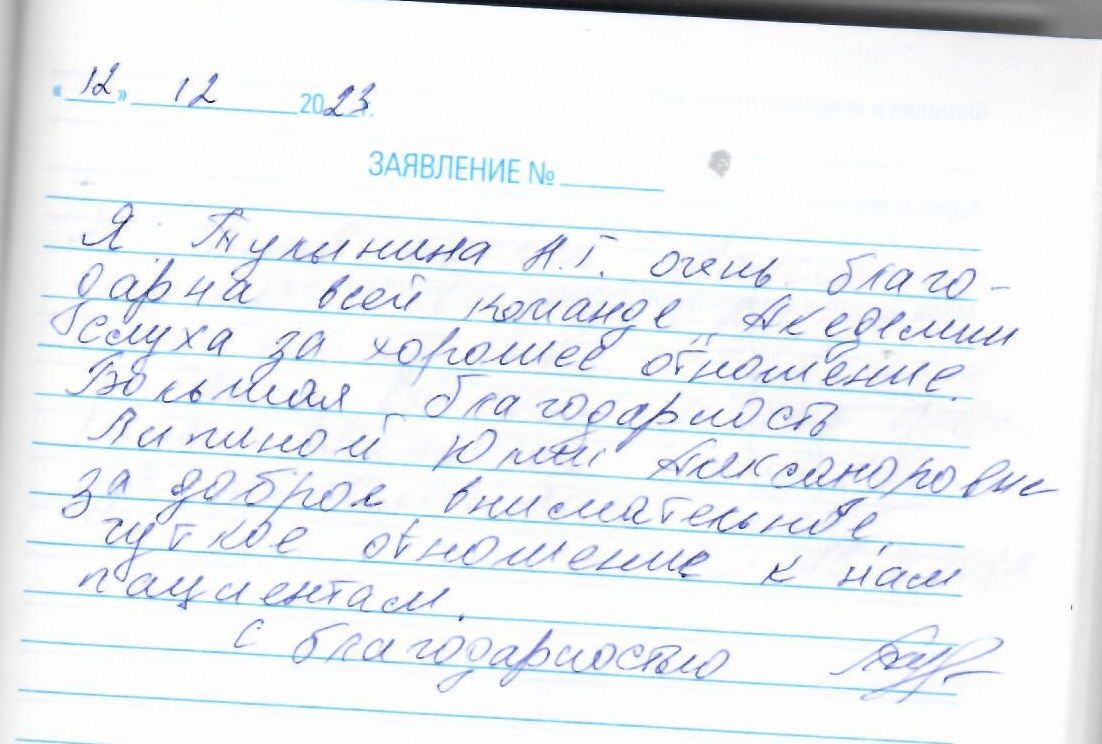 «12» 12 2023г.
ЗАЯВЛЕНИЕ №
Я Н.Г. очень благо-
дарна всей команде „Академии
слуха за хорошее отношение.
Большая благодарность
Липиной Юлии Александровне
за доброе внимательное,
чуткое отношение к нам
пациентам.
с благодарностью